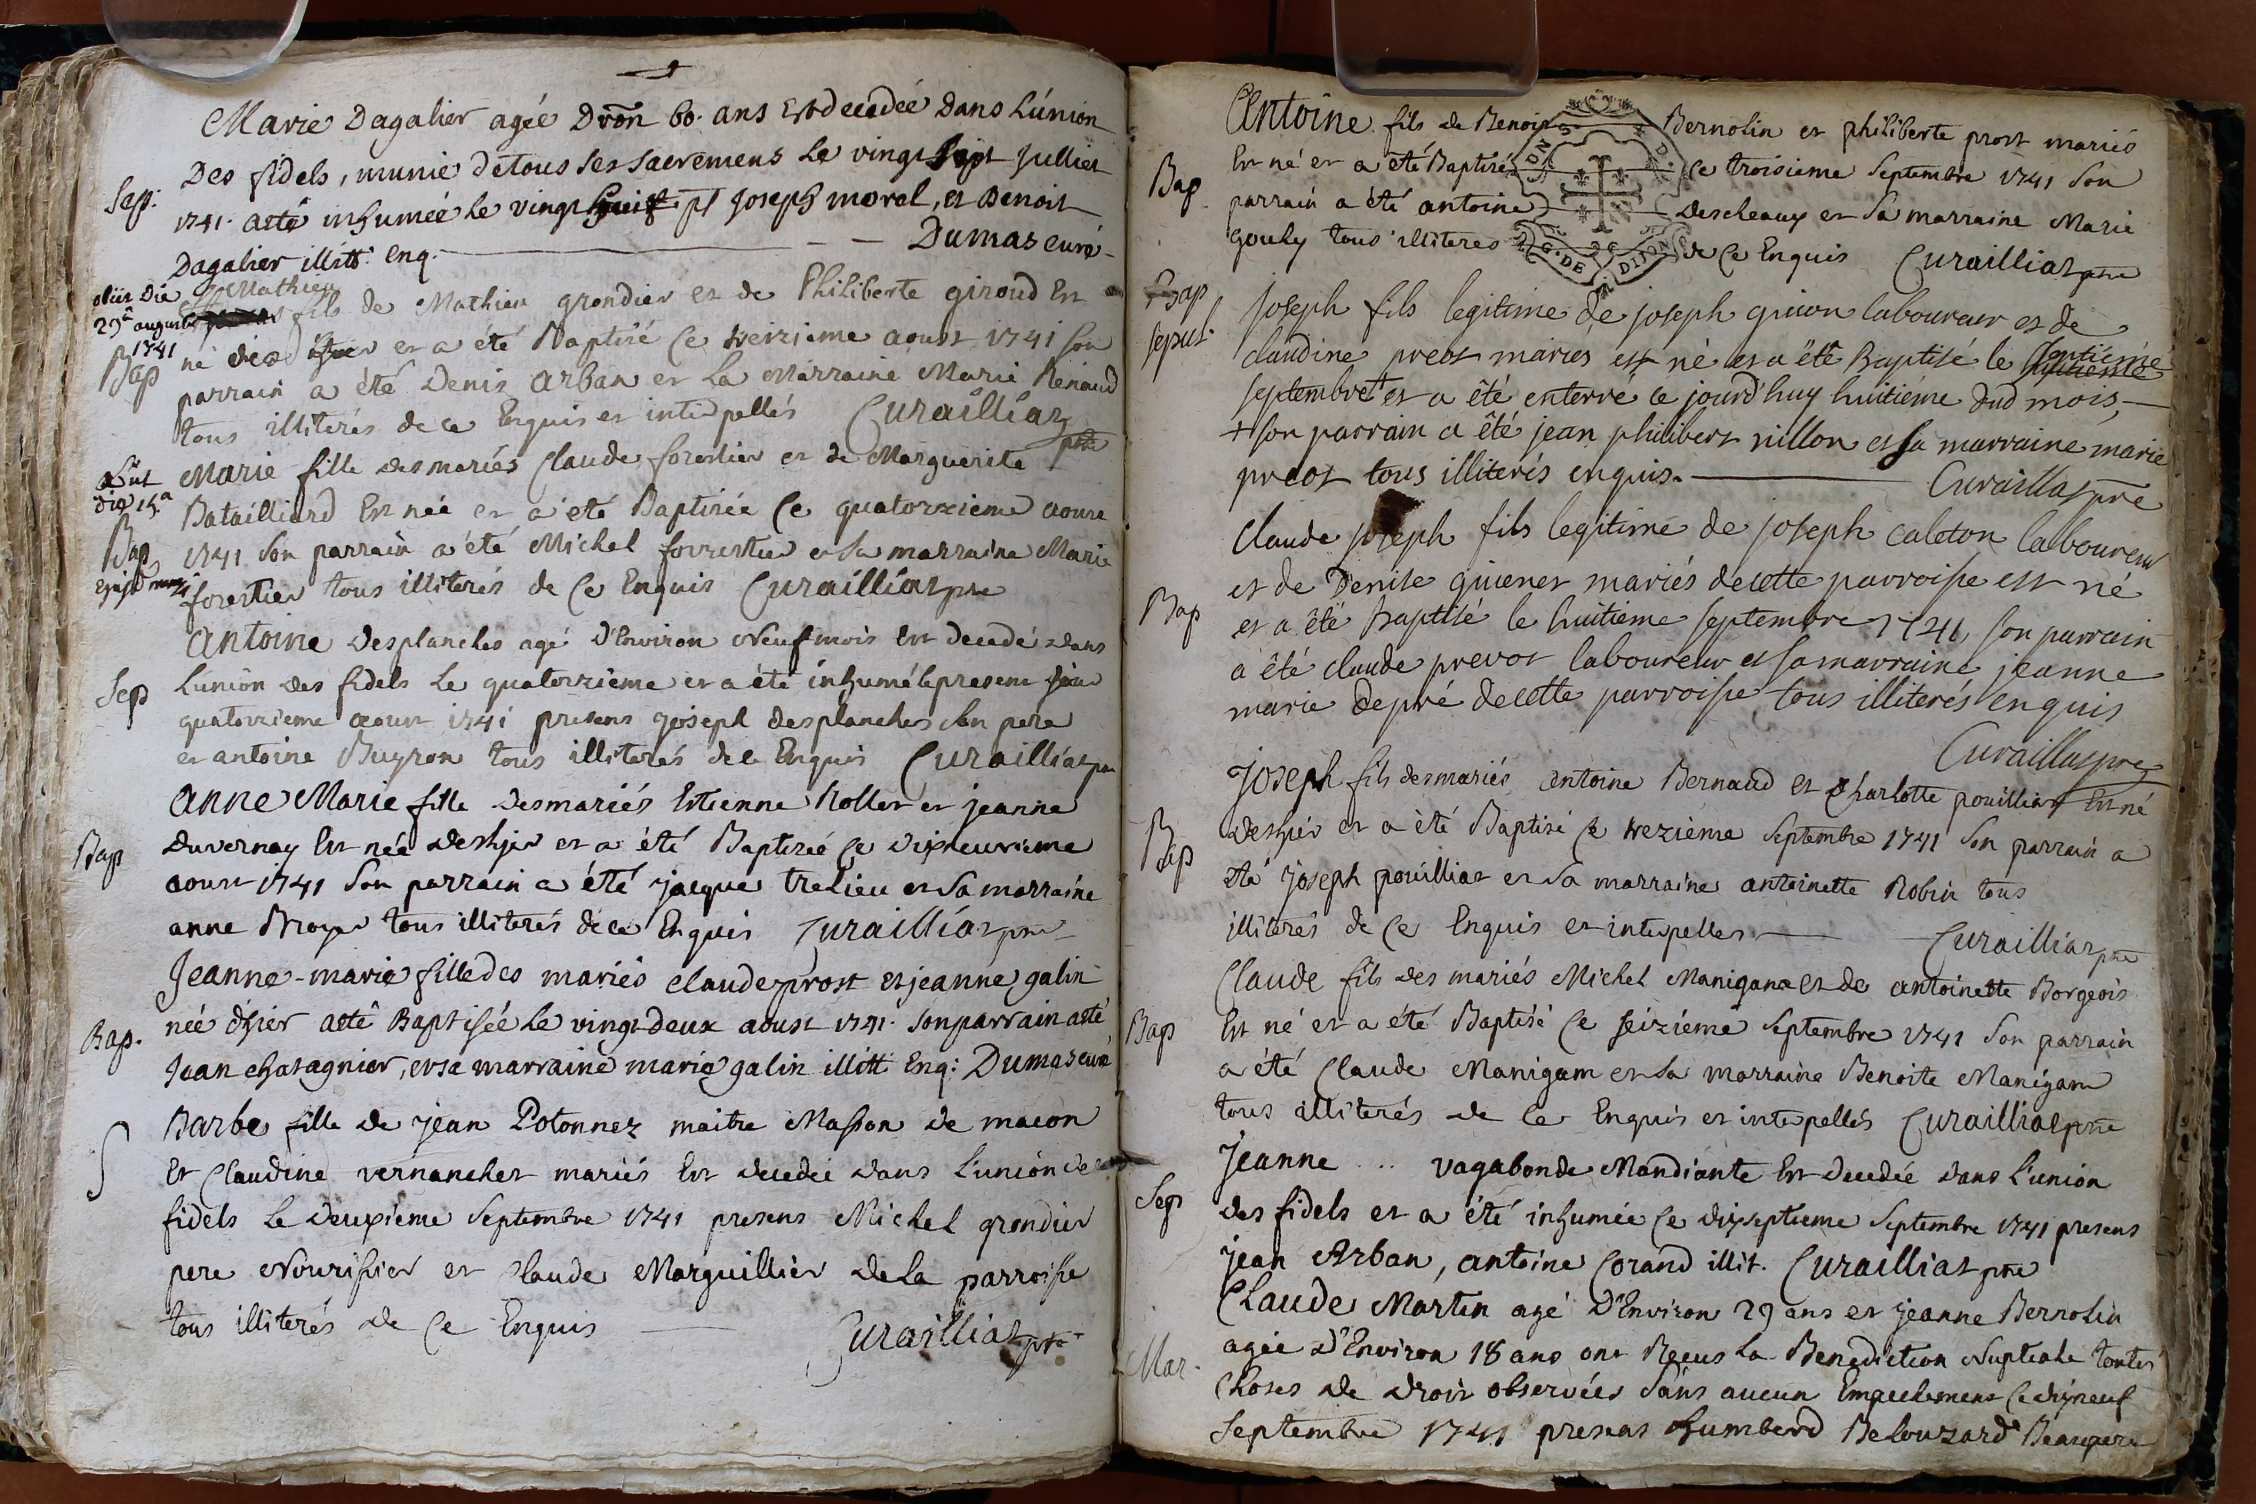 Marie Dagalier agée Dron 60. ans Est decedée Dans L'union
Des fidels, munie de tous ses sacremens Le vingt sept Julliet
Sep:
1741. aeté inhumée le vingt huit pt Joseph morel, et Benoit
Dagalier illitt. Enq. Dumas curé
obiit Die
29a augusti
1741
Mathieu
fils de Mathieu grondier et de Philiberte giroud Est
Bap
né et a été Baptisé Ce treizieme aoust 1741 son
parrain a été Denis arban et la Marraine Marie Renaud
tous illiterés de ce Enquis et interpellés Curailliat pre
obiit
die 15a
Marie fille des mariés Claude forestier et de Marguerite
Batailliard Est née et a été Baptisée Ce quatorzieme aoust
Bap
1741 son parrain a été Michel forrestier et sa marraine Marie
forestier tous illiterés de Ce Enquis Curailliat pre
antoine Desplanches agé D'Environ Neuf mois Est decedé dans
Sep
L'union des fidels Le quatorzieme et a été inhumé le present jour
quatorzieme aoust 1741 presens joseph desplanches son pere
et antoine Buyron tous illiterés de ce Enquis Curailliat pre
anne Marie fille des mariés Estienne Rollet et jeanne
Bap
duvernay Est née des hjer et a été Baptisée Ce dixneuvieme
aoust 1741 son parrain a été jacque trelieu et sa marraine
anne Broyer tous illiterés de ce Enquis Curailliat pre
Jeanne-marie fille des mariés claude prost et jeanne galin
Bap.
née d'hier aété Baptisée Le vingt deux aoust 1741. son parrain aété
Jean chatagnier, et sa marraine marie galin illitt. Enq: Dumas curé
S
Barbe fille de jean Potonnez maitre Masson de macon
Et Claudine vernanchet mariés Est decedée dans L'union des
fidels Le deuxieme Septembre 1741 presens Michel grondier
pere Nourissier et Claude Marguillier de la parroisse
tous illiterés de Ce Enquis Curailliat pre
Antoine fils de Benoist Bernolin et philiberte prost mariés
Bap
Est né et a été Baptisé Ce troisieme Septembre 1741 Son
parrain a été antoine Descheaux et Sa marraine Marie
gouly tous illiteres de Ce Enquis Curailliat pre
G. DE DIJON
Bap
sepult
joseph fils legitime de joseph guion laboureur et de
claudine preost maries est né et a été Baptisé le septiéme
septembre + et a été enterré ce jourd'huy huitiéme dud mois,
+ son parrain a été jean philibert nillon et sa marraine marie
preost tous illiterés enquis. Curailliat pre
Claude joseph fils legitime de joseph caleton laboureur
et de Denise guienet mariés de cette parroisse est né
Bap
et a été baptisé le huitieme septembre 1741, son parrain
a été claude prevot laboureur et sa marraine jeanne
marie depré de cette parroisse tous illiterés enquis
Curailliat pre
joseph fils des mariés antoine Bernaud et Charlotte pouilliat Est né
Bap
des hier et a été Baptisé Ce trezième Septembre 1741 Son parrain a
été joseph pouilliat et sa marraine antoinette Robin tous
illiterés de Ce Enquis et interpellés Curailliat pre
Claude fils des mariés Michel Manigand et de antoinette Borgeois
Bap
Est né et a été Baptisé Ce seizieme Septembre 1741 Son parrain
a été Claude Manigam et sa marraine Benoite Manigam
tous illiterés de Ce Enquis et interpellés Curailliat pre
Jeanne ... vagabonde Mandiante Est decedée dans L'union
Sep
des fidels et a été inhumée Ce dixseptieme Septembre 1741 presens
jean Arban, antoine Corand illit. Curailliat pre
Claude Martin agé d'Environ 29 ans et jeanne Bernolin
agée d'Environ 18 ans ont Reçus La Benediction Nuptiale toutes
Mar.
Choses de droit observées Sans aucun Empechement Ce dixneuf
Septembre 1741 presens humberd Belouzard Beaupere